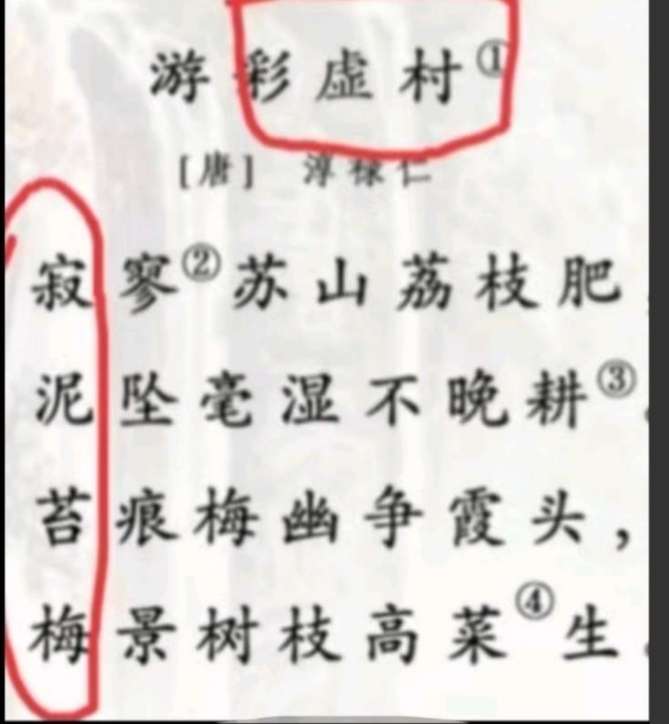 游彩虚村①
[唐] 淳禄仁
寂寥②苏山荔枝肥
泥坠毫湿不晚耕③。
苔痕梅幽争霞头，
梅景树枝高菜④生。